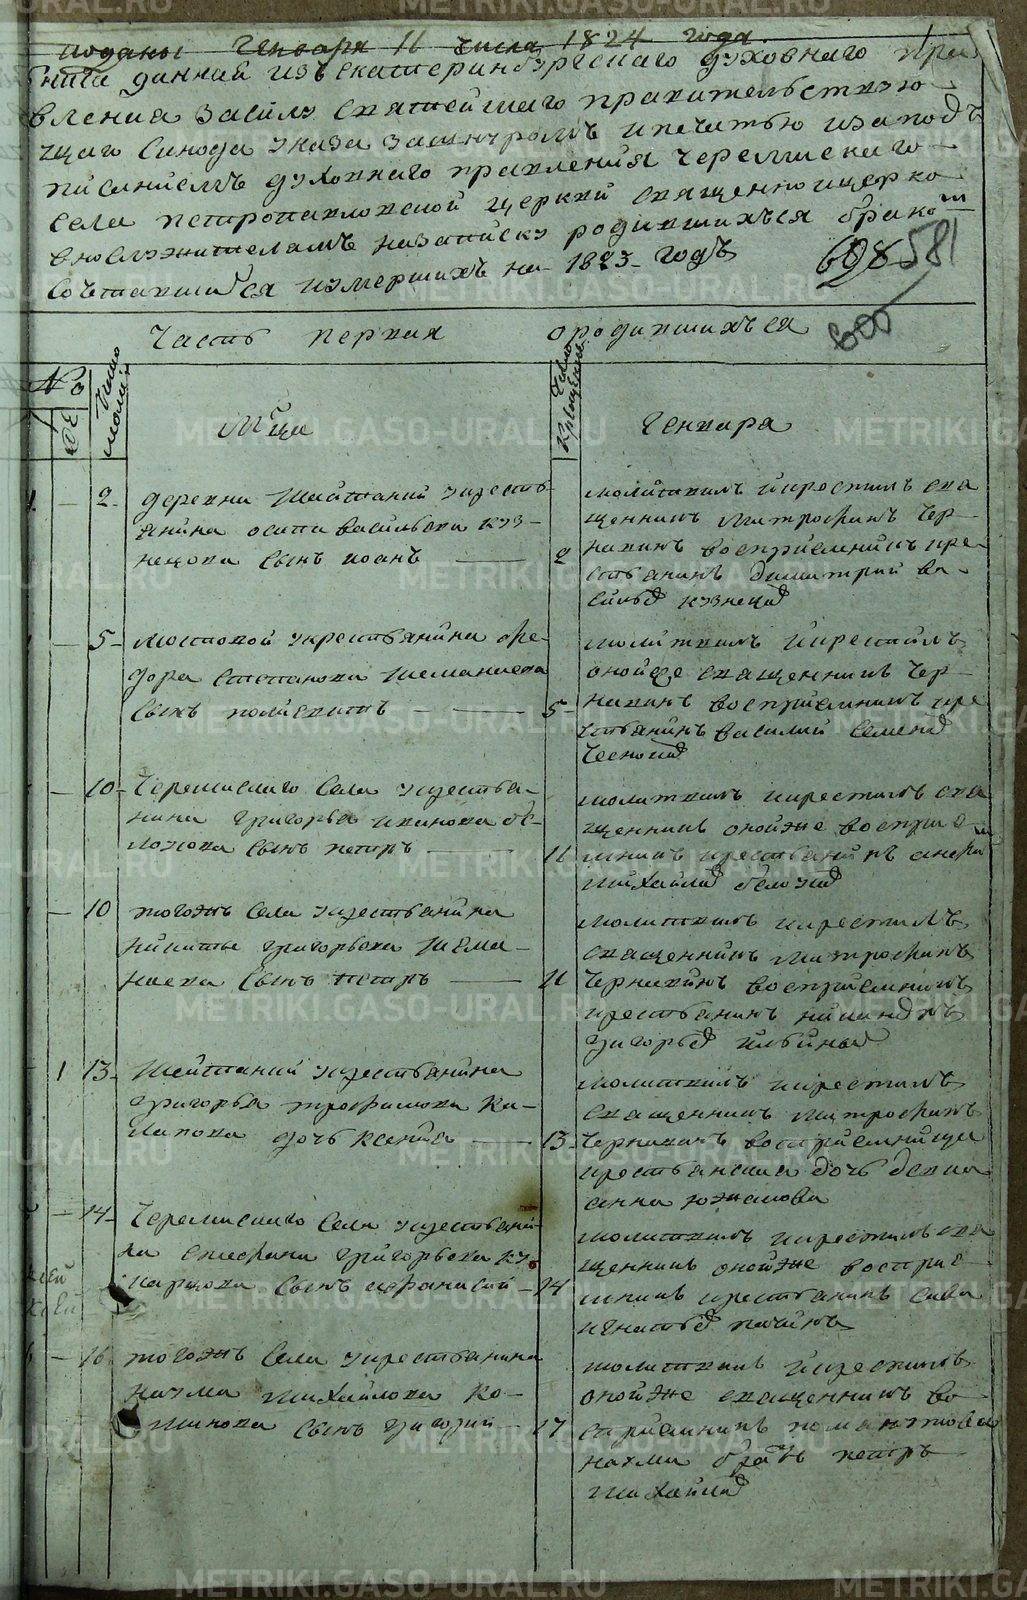 поданы Генваря 11 числа 1824 года.
Книга данная изъ екатеринбургскаго духовнаго пра
вления засилу святейшаго правительствую
щаго синода указа зашнуромъ ипечатью изаподъ
писаниемъ духовнаго правления черемискаго
села петропавловской церкви священноцерко
внослужителамъ назаписку родившихъся бракомъ
сочтавшихся иумершихъ на 1823 годъ
608 581
600
часть первая ородившихъся
№
число
молит
число
крещения
Мца Генваря
2 деревни шайтанки укресть
янина осипа васильева куз
нецова сынъ иоанъ
2
молитвилъ икрестилъ свя
щенникъ митрофанъ чер
навинъ восприемникъ кре
стьянинъ димитрий ва
сильевъ кузнецов
5 мостовой укрестьянина фе
дора степанова шеманаева
сынъ полиевктъ
5
молитвилъ икрестилъ
онойже священникъ чер
навинъ восприемникъ кре
стьянинъ василий семенов
чесноков
10 черемискаго села укрестья
нина григорья иванова бе
лоусова сынъ петръ
11
молитвилъ икрестилъ свя
щенникъ онойже восприе
мникъ крестьянинъ
михайлов белоусов
10 тогожъ села укрестьянина
никиты григорьева шема
наева сынъ петръ
11
молитвилъ икрестилъ
священникъ митрофанъ
чернавинъ восприемникъ
крестьянинъ никандръ
григорьев ильиных
1 13 шайтанки укрестьянина
григорья трофимова ка
дочь ксения
13
молитвилъ икрестилъ
священникъ митрофанъ
чернавинъ восприемница
крестьянская дочь девка
анна
14 черемискаго села укрестьяни
на стефана григорьева ку
карцова сынъ афанасий
14
молитвилъ икрестилъ свя
щенникъ онойже восприе
мникъ крестьянинъ сава
игнатьев
16 тогожъ села укрестьянина
наума михайлова ко
сынъ григорий
17
молитвилъ икрестилъ
онойже священникъ во
сприемникъ
наума братъ петръ
михайлов
METRIKI.GASO-URAL.RU